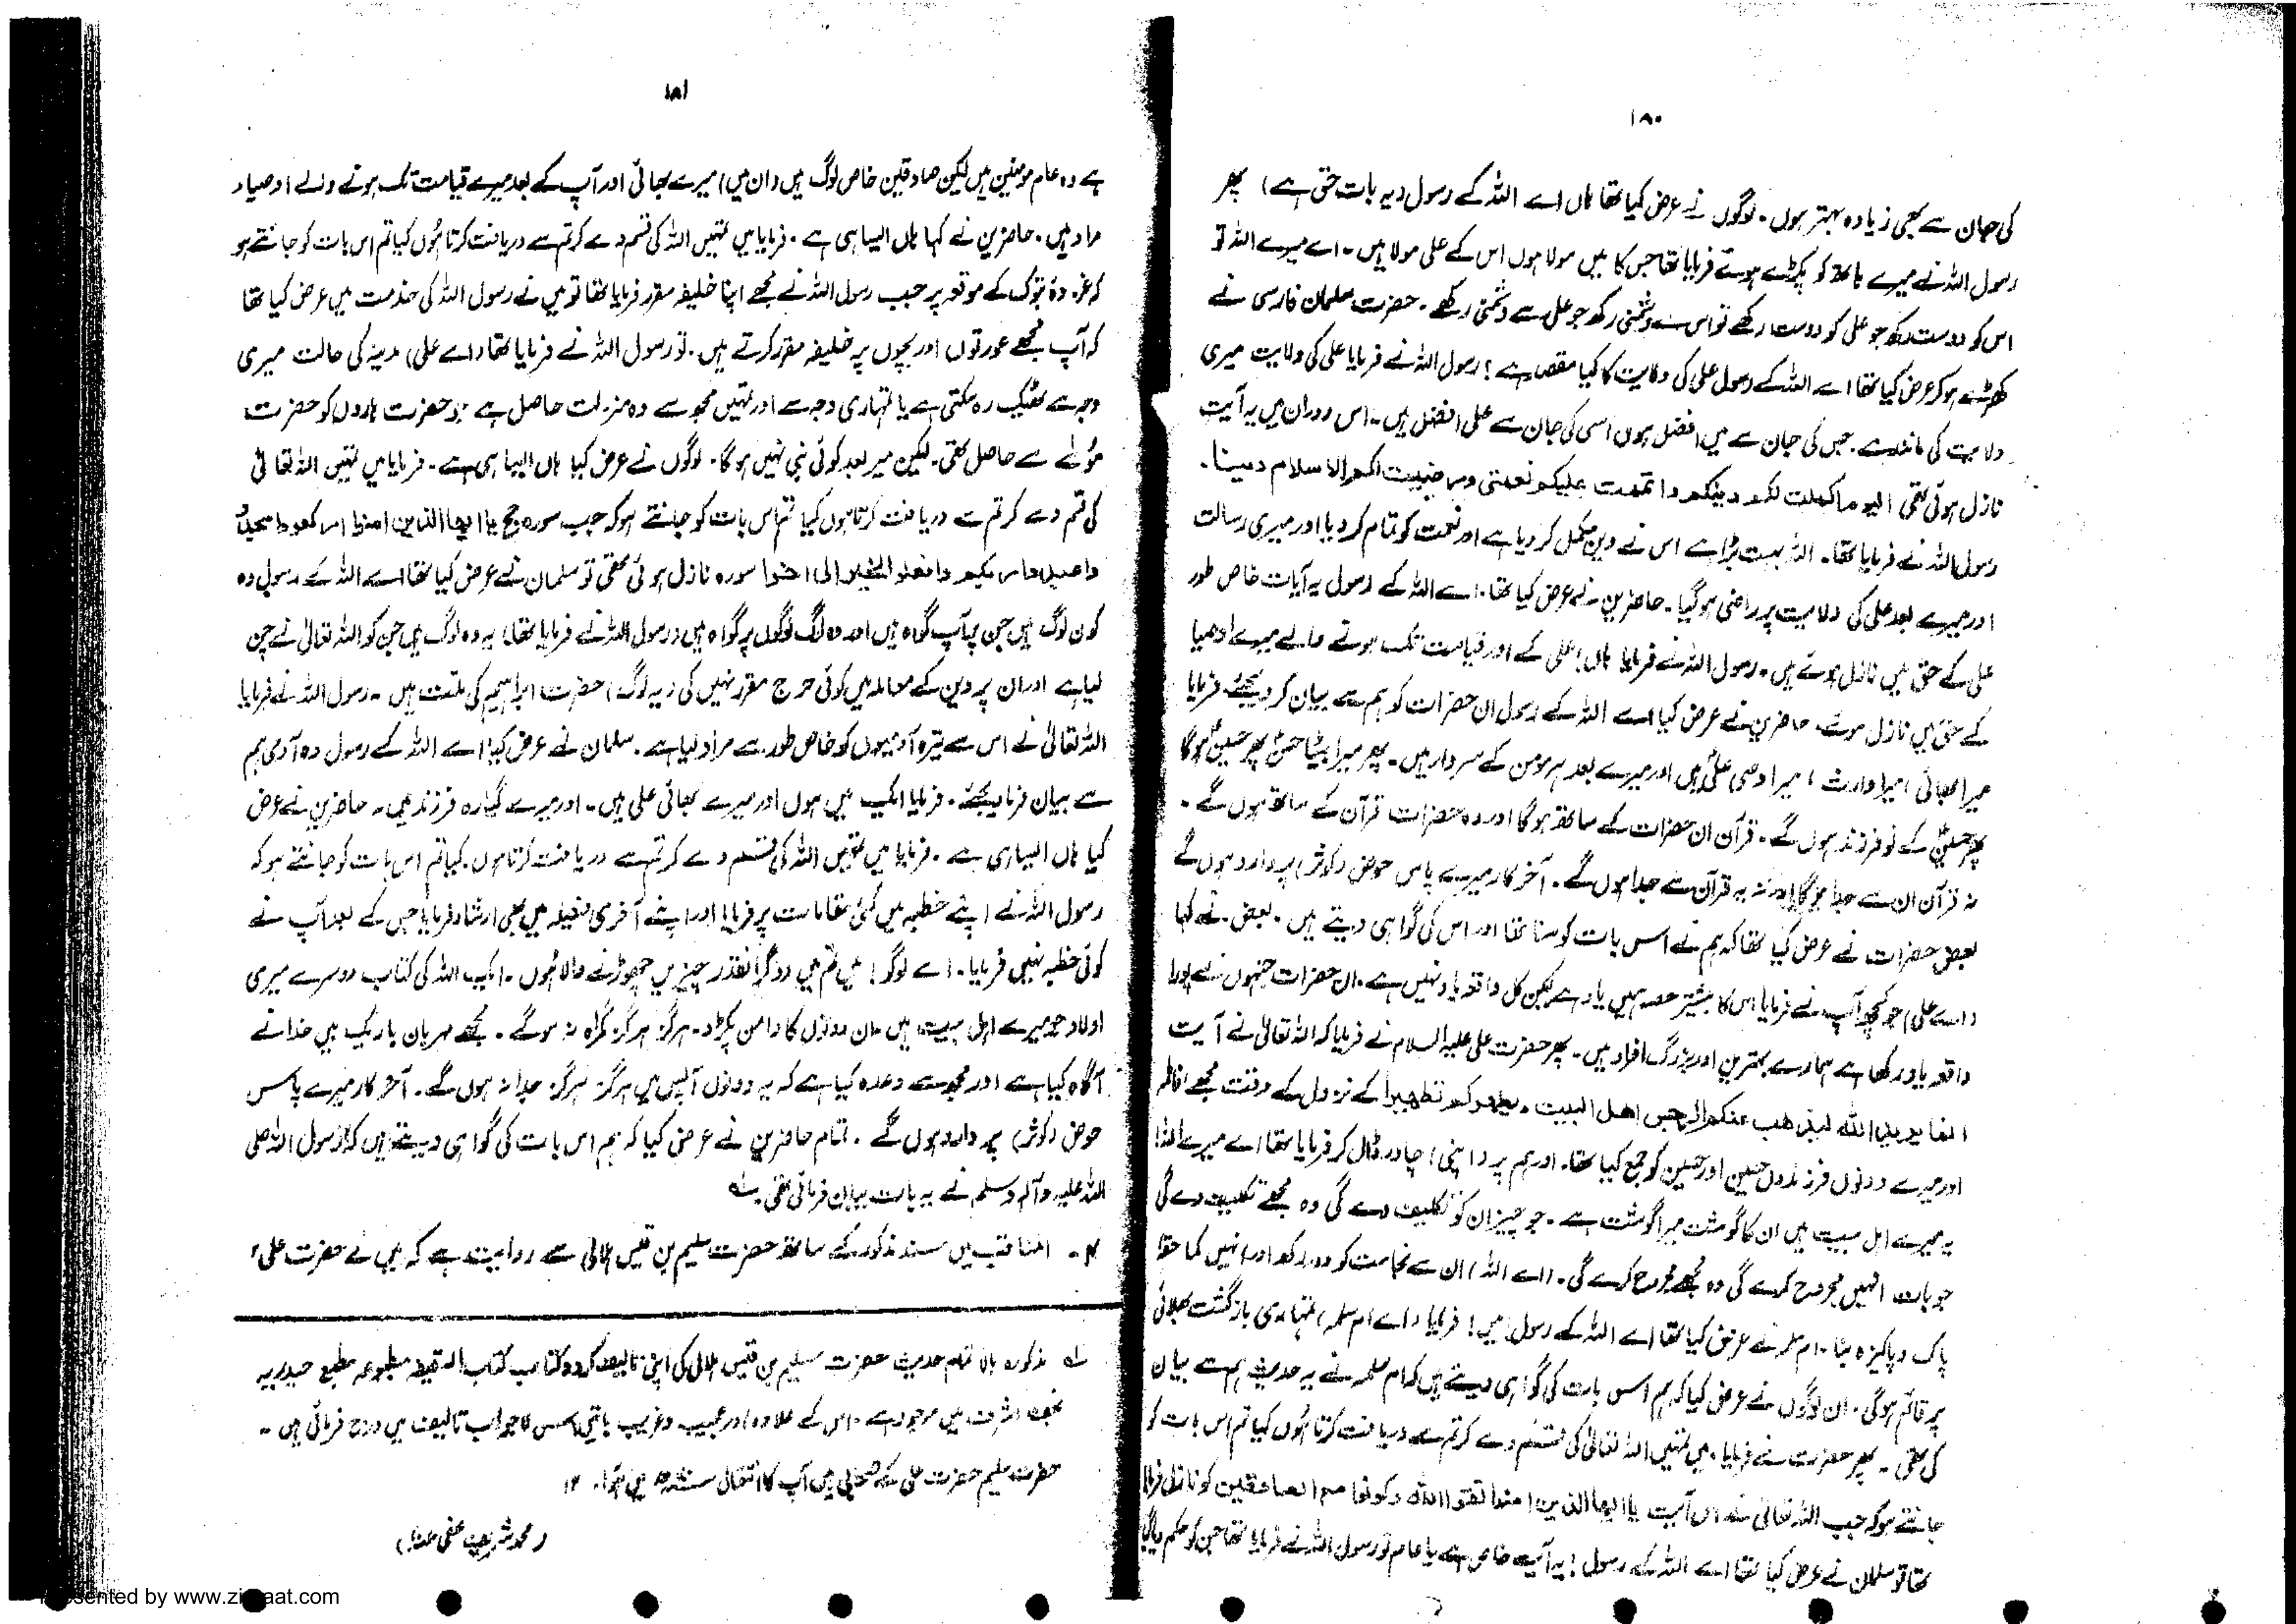 ۱۸۰
کی جان سے بھی زیادہ بہتر ہوں۔ لوگوں نے عرض کیا تھا ہاں اے اللہ کے رسول (یہ بات حق ہے) پھر
رسول اللہ نے میرے ہاتھ کو پکڑے ہوئے فرمایا تھا جس کا میں مولا ہوں اس کے علی مولا ہیں۔ اے میرے اللہ تو
اس کو دوست رکھ جو علی کو دوست رکھے تو اس سے دشمنی رکھ جو علی سے دشمنی رکھے۔ حضرت سلمان فارسی نے
کھڑے ہو کر عرض کیا تھا اے اللہ کے رسول علی کی ولایت کا کیا مقصد ہے؟ رسول اللہ نے فرمایا علی کی ولایت میری
ولایت کی مانند ہے۔ جس کی جان سے میں افضل ہوں اسی کی جان سے علی افضل ہیں۔ اس دوران میں یہ آیت
نازل ہوئی تھی الیوم اکملت لکم دینکم واتممت علیکم نعمتی ورضیت لکم الاسلام دینا۔
رسول اللہ نے فرمایا تھا۔ اللہ بہت بڑا ہے اس نے دین مکمل کر دیا ہے اور نعمت کو تمام کر دیا اور میری رسالت
اور میرے بعد علی کی ولایت پر راضی ہو گیا۔ حاضرین نے عرض کیا تھا۔ اے اللہ کے رسول یہ آیات خاص طور
علی کے حق میں نازل ہوئے ہیں۔ رسول اللہ نے فرمایا ہاں! علی کے اور قیامت تک ہونے والے میرے اوصیا
کے حق میں نازل ہوئے۔ حاضرین نے عرض کیا اے اللہ کے رسول ان حضرات کو ہم سے بیان کر دیجئے فرمایا
میرا بھائی، میرا وارث، میرا وصی علیؑ ہیں اور میرے بعد ہر مومن کے سردار ہیں۔ پھر میرا بیٹا حسنؑ پھر حسینؑ ہو گا
پھر حسینؑ کے نو فرزند ہوں گے۔ قرآن ان حضرات کے ساتھ ہو گا اور وہ حضرات قرآن کے ساتھ ہوں گے۔
نہ قرآن ان سے جدا ہو گا اور نہ یہ قرآن سے جدا ہوں گے۔ آخر کار میرے پاس حوض (کوثر) پر وارد ہوں گے
بعض حضرات نے عرض کیا تھا کہ ہم نے اس بات کو سنا تھا اور اس کی گواہی دیتے ہیں۔ بعض نے کہا
(اے علی) جو کچھ آپ نے فرمایا اس کا بیشتر حصہ ہمیں یاد ہے لیکن کل واقعہ یاد نہیں ہے۔ ان حضرات جنہوں نے پورا
واقعہ یاد رکھا ہے ہمارے بہترین اور بزرگ افراد ہیں۔ پھر حضرت علی علیہ السلام نے فرمایا کہ اللہ تعالیٰ نے آیت
انما یرید اللہ لیذھب عنکم الرجس اھل البیت ویطھرکم تطھیرا کے نزول کے وقت مجھے فاطمہ
اور میرے دونوں فرزندوں حسین اور حسین کو جمع کیا تھا۔ اور ہم پر (اپنی) چادر ڈال کر فرمایا تھا اے میرے اللہ!
یہ میرے اہل بیت ہیں ان کا گوشت میرا گوشت ہے۔ جو چیز ان کو تکلیف دے گی وہ مجھے تکلیف دے گی
جو بات انہیں مجروح کرے گی وہ مجھے مجروح کرے گی۔ (اے اللہ) ان سے نجاست کو دور رکھ اور انہیں کما حقہٗ
پاک و پاکیزہ بنا۔ ام سلمہ نے عرض کیا تھا اے اللہ کے رسول! میں! فرمایا (اے ام سلمہ) تمہاری بازگشت بھلائی
پر قائم ہو گی۔ ان لوگوں نے عرض کیا کہ ہم اس بات کی گواہی دیتے ہیں کہ ام سلمہ نے یہ حدیث ہم سے بیان
کی تھی۔ پھر حضرت نے فرمایا۔ میں تمہیں اللہ تعالیٰ کی قسم دے کر تم سے دریافت کرتا ہوں کیا تم اس بات کو
جانتے ہو کہ جب اللہ تعالیٰ نے اس آیت یا ایھا الذین امنوا اتقوا اللہ وکونوا مع الصادقین کو نازل فرمایا
تھا تو سلمان نے عرض کیا تھا اے اللہ کے رسول! یہ آیت خاص ہے یا عام تو رسول اللہ نے فرمایا تھا جن کو حکم دیا گیا
۱۸۱
ہے وہ عام مومنین ہیں لیکن صادقین خاص لوگ ہیں (ان میں) میرے بھائی اور آپ کے بعد میرے قیامت تک ہونے والے اوصیاء
مراد ہیں۔ حاضرین نے کہا ہاں ایسا ہی ہے۔ فرمایا میں تمہیں اللہ کی قسم دے کر تم سے دریافت کرتا ہوں کیا تم اس بات کو جانتے ہو
کہ غزوۂ تبوک کے موقعہ پر جب رسول اللہ نے مجھے اپنا خلیفہ مقرر فرمایا تھا تو میں نے رسول اللہ کی خدمت میں عرض کیا تھا
کہ آپ مجھے عورتوں اور بچوں پر خلیفہ مقرر کرتے ہیں۔ تو رسول اللہ نے فرمایا تھا (اے علی) مدینہ کی حالت میری
وجہ سے ٹھیک رہ سکتی ہے یا تمہاری وجہ سے اور تمہیں مجھ سے وہ منزلت حاصل ہے جو حضرت ہارون کو حضرت
موسٰے سے حاصل تھی۔ لیکن میر بعد کوئی نبی نہیں ہو گا۔ لوگوں نے عرض کیا ہاں ایسا ہی ہے۔ فرمایا میں تمہیں اللہ تعالیٰ
کی قسم دے کر تم سے دریافت کرتا ہوں کیا تم اس بات کو جانتے ہو کہ جب سورہ حج یا ایھا الذین امنوا ارکعوا واسجدوا
واعبدوا ربکم وافعلوا الخیر الی اخرا سورہ نازل ہوئی تھی تو سلمان نے عرض کیا تھا اے اللہ کے رسول وہ
کون لوگ ہیں جن پر آپ گواہ ہیں اور وہ لوگ لوگوں پر گواہ ہیں (رسول اللہ نے فرمایا تھا) یہ وہ لوگ ہیں جن کو اللہ تعالیٰ نے چن
لیا ہے اور ان پر دین کے معاملہ میں کوئی حرج مقرر نہیں کی (یہ لوگ) حضرت ابراہیمؑ کی ملت ہیں۔ رسول اللہ نے فرمایا
اللہ تعالیٰ نے اس سے تیرہ آدمیوں کو خاص طور سے مراد لیا ہے۔ سلمان نے عرض کیا! اے اللہ کے رسول وہ آدمی ہم
سے بیان فرمایئے۔ فرمایا ایک میں ہوں اور میرے بھائی علی ہیں۔ اور میرے گیارہ فرزند ہیں۔ حاضرین نے عرض
کیا ہاں ایسا ہی ہے۔ فرمایا میں تمہیں اللہ کی قسم دے کر تم سے دریافت کرتا ہوں۔ کیا تم اس بات کو جانتے ہو کہ
رسول اللہ نے اپنے خطبہ میں کئی مقامات پر فرمایا اور اپنے آخری خطبہ میں بھی ارشاد فرمایا جس کے بعد آپ نے
کوئی خطبہ نہیں فرمایا۔ اے لوگو! میں تم میں دو گرانقدر چیزیں چھوڑنے والا ہوں۔ ایک اللہ کی کتاب دوسرے میری
اولاد جو میرے اہل بیت ہیں ان دونوں کا دامن پکڑو۔ ہرگز ہرگز گمراہ نہ ہو گے۔ مجھے مہربان باریک بین خدا نے
آگاہ کیا ہے اور مجھ سے وعدہ کیا ہے کہ یہ دونوں آپس میں ہرگز ہرگز جدا نہ ہوں گے۔ آخر کار میرے پاس
حوض (کوثر) پر وارد ہوں گے۔ تمام حاضرین نے عرض کیا کہ ہم اس بات کی گواہی دیتے ہیں کہ رسول اللہ صلی
اللہ علیہ وآلہ وسلم نے یہ بات بیان فرمائی تھی۔ ؎
المناقب میں سند مذکور کے ساتھ حضرت سلیم بن قیس ہلالی سے روایت ہے کہ میں نے حضرت علیؑ
؎ مذکورہ بالا تمام حدیث حضرت سلیم بن قیس ہلالی کی اپنی تالیف کردہ کتاب کتاب السقیفہ مطبوعہ مطبع حیدریہ
نجف اشرف میں موجود ہے۔ اس کے علاوہ اور عجیب و غریب باتیں اس لاجواب تالیف میں درج فرمائی ہیں۔
حضرت سلیم حضرت علی کے صحابی ہیں آپ کا انتقال میں ہوا۔ ۱۲
(محمد شریف عفی عنہ)
Presented by www.ziaraat.com